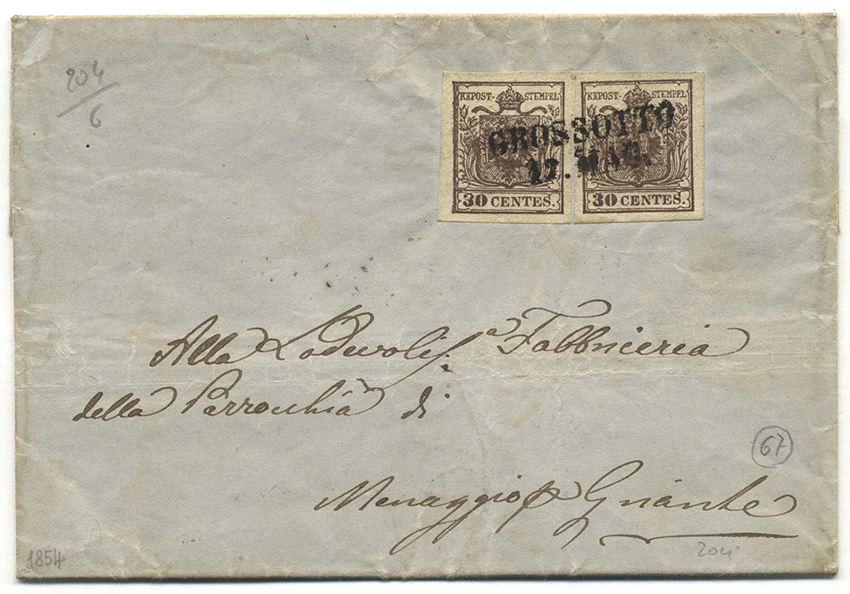 204
6
KKPOST-STEMPEL KKPOST-STEMPEL
GROSSOTTO
17. MAG.
30 CENTES. 30 CENTES.
Alla Lodevolis.a Fabbrieria
della Parrocchia di
67
Menaggio p Griante
1854
204